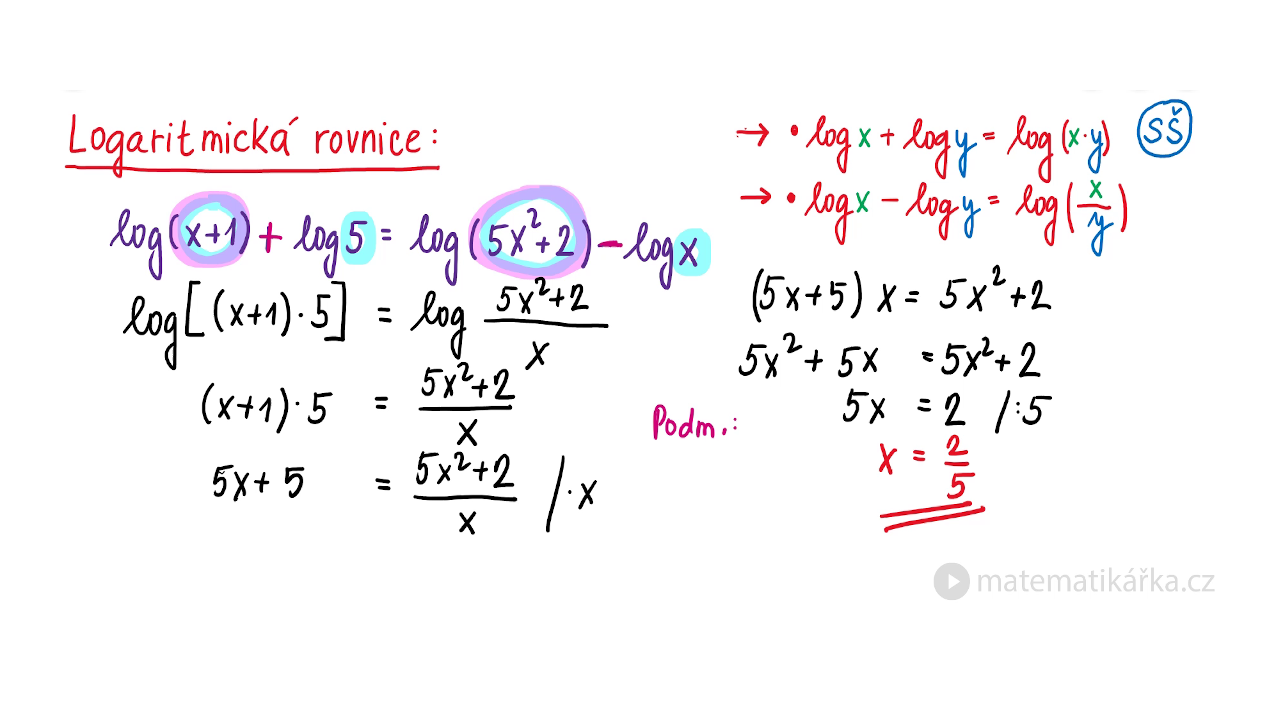 Logaritmická rovnice:
log(x+1) + log 5 = log(5x²+2) - log x
log[(x+1)·5] = log (5x²+2)/x
(x+1)·5 = (5x²+2)/x
5x + 5 = (5x²+2)/x /·x
→ • log x + log y = log(x·y)
SŠ
→ • log x - log y = log(x/y)
(5x+5) x = 5x²+2
5x² + 5x = 5x²+2
5x = 2 /:5
Podm.:
x = 2/5
matematikářka.cz